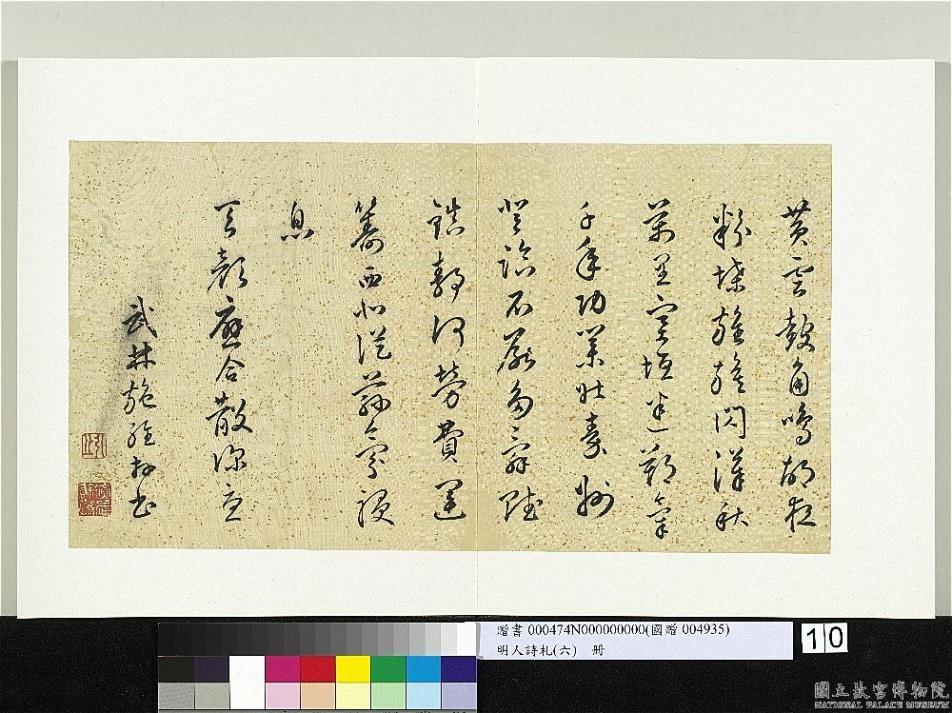 黃雲鼓角鳴胡夜
粉堞旌旗閃漢秋
萬里空垣迷朔氣
千年功業壯
登臨不厭多辭賦
鎖鑰何勞費運
籌西北從茲氛祲
息
天顏應合散深
武林施經書
贈書 000474N000000000(國贈 004935)
明人詩札(六) 冊
10
國立故宮博物院
NATIONAL PALACE MUSEUM